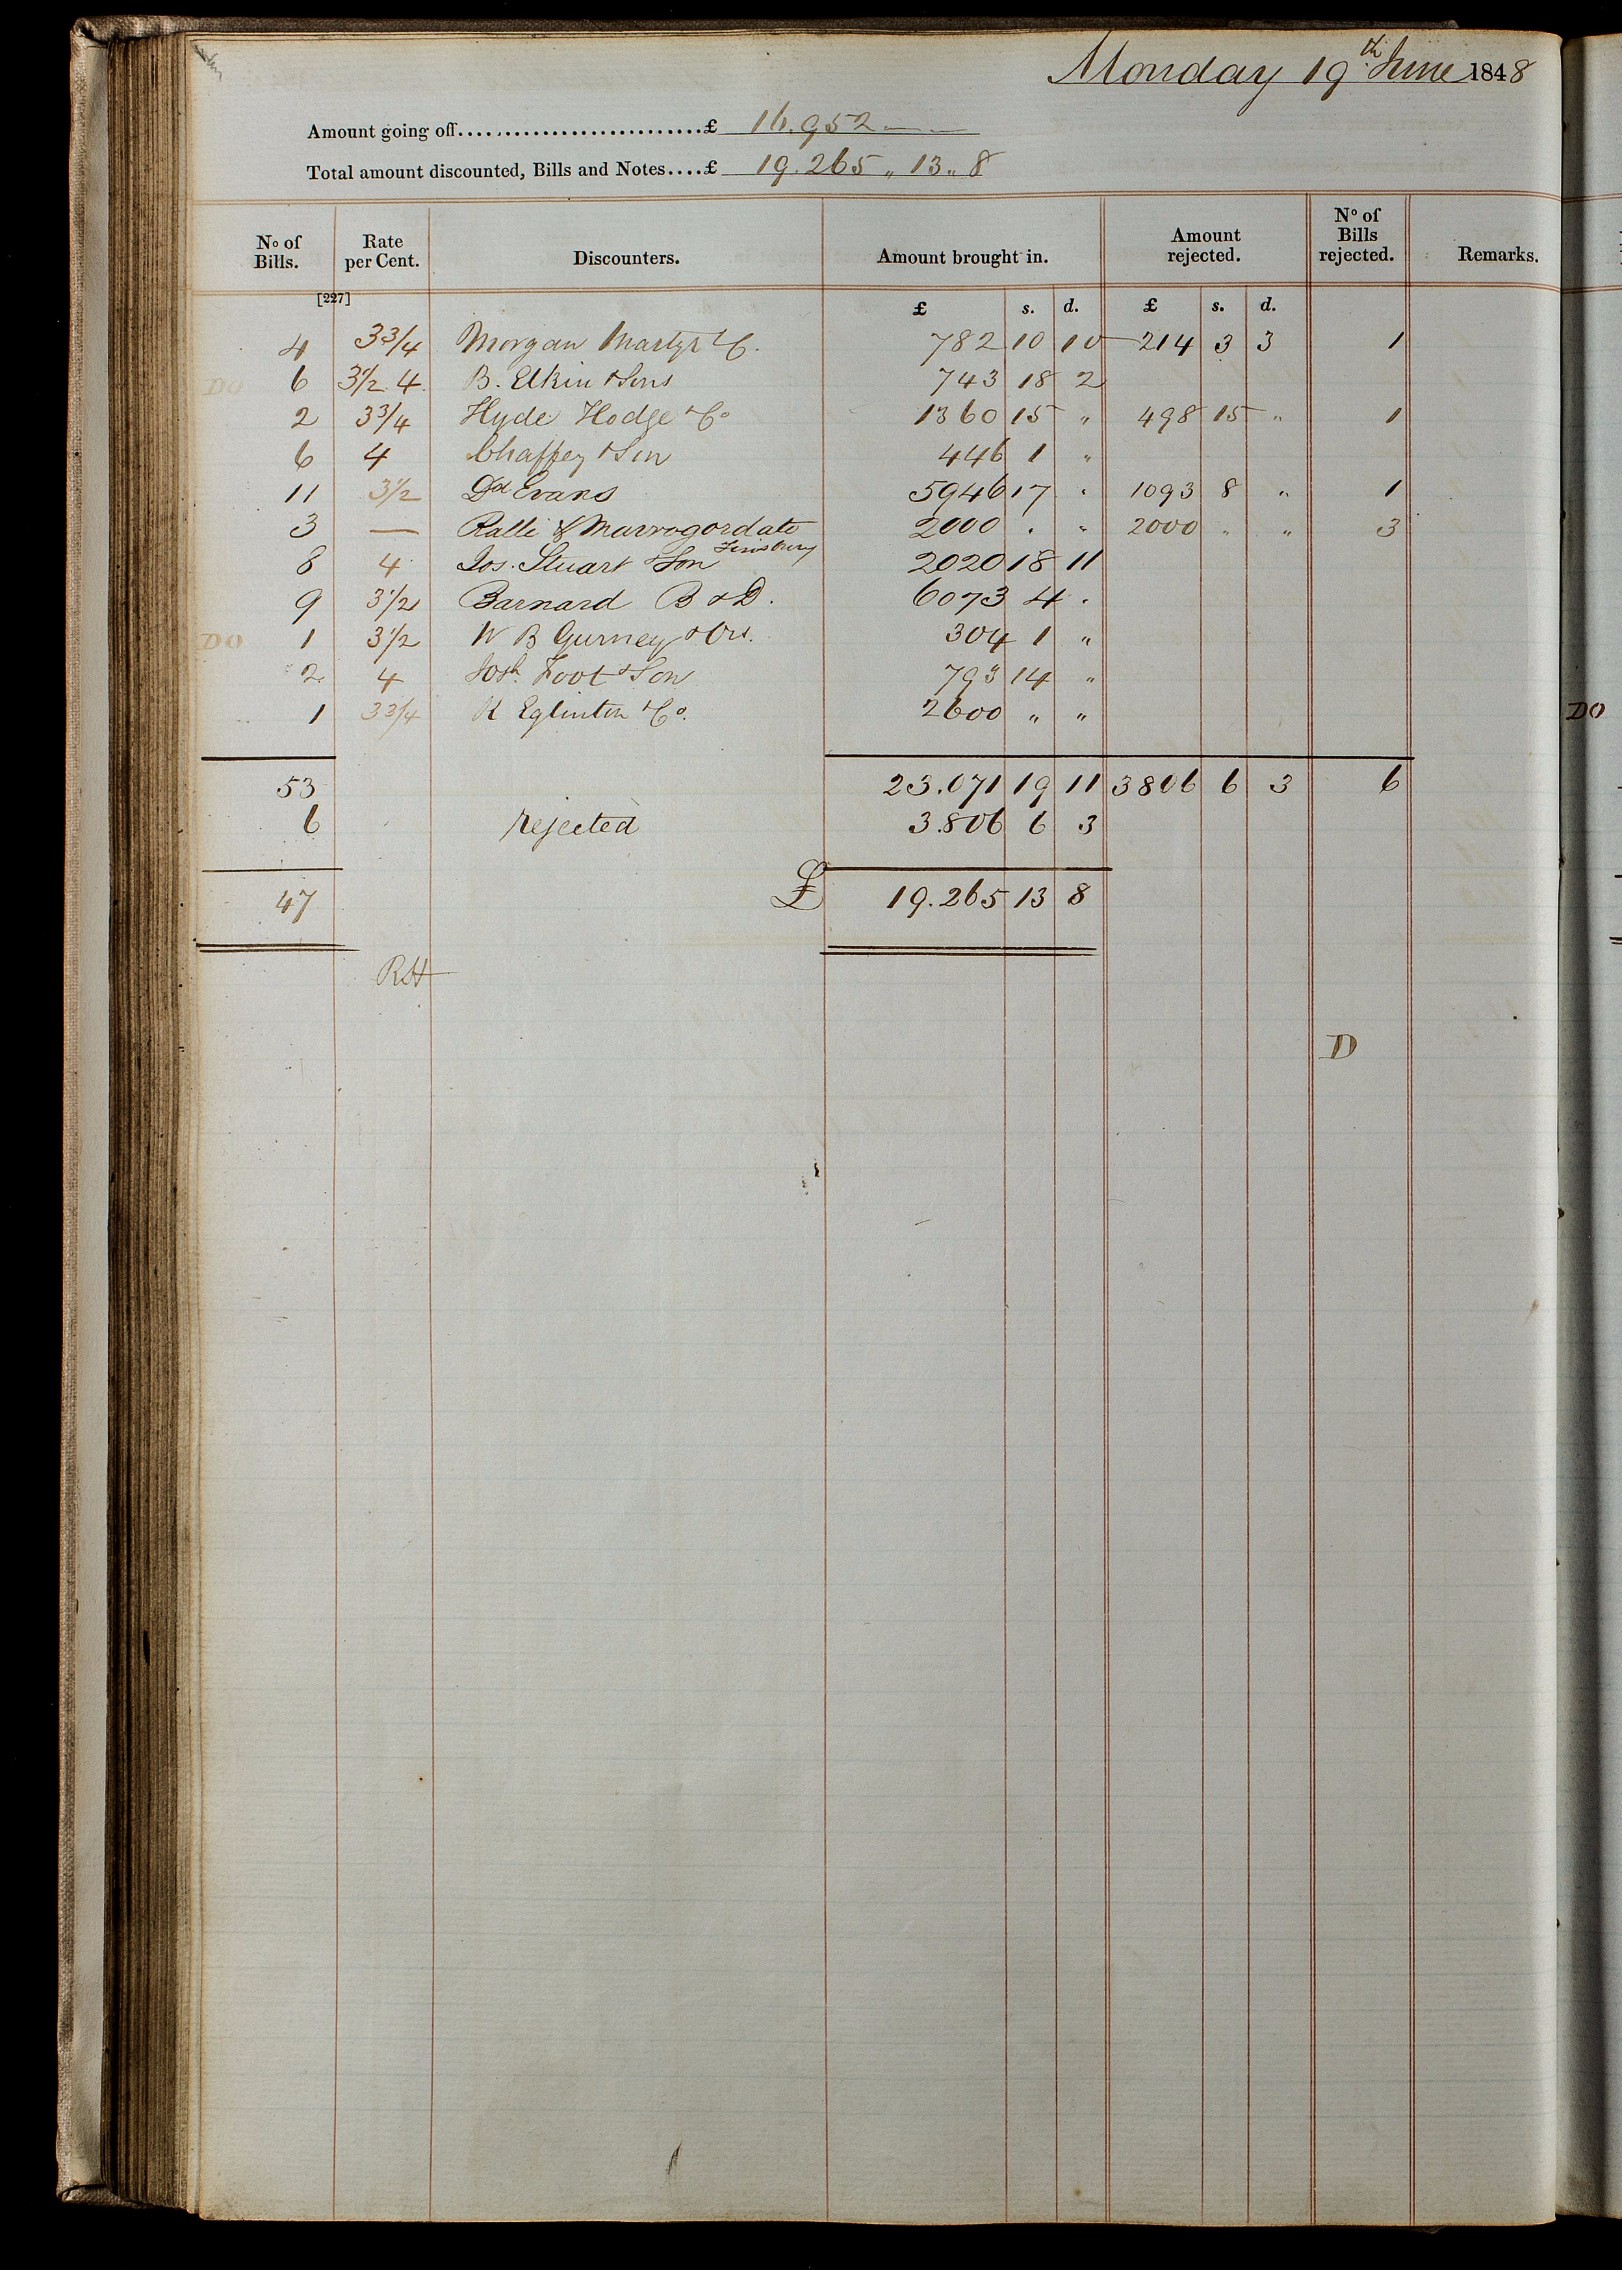 Monday 19th June 1848
Amount going off..........................£ 16.952 — —
Total amount discounted, Bills and Notes....£ 19.265 „ 13 „ 8
No of Bills. Rate per Cent. Discounters. Amount brought in. Amount rejected. No of Bills rejected. Remarks.
[227] £ s. d. £ s. d.
4 3 3/4 Morgan Martyr & Co. 782 10 10 214 3 3 1
DO 6 3 1/2 4 B. Elkin & Sons 743 18 2
2 3 3/4 Hyde Hodge & Co 1360 15 „ 498 15 „ 1
6 4 Chaffey & Son 446 1 „
11 3 1/2 Dd Evans 5946 17 „ 1093 8 „ 1
3 — Ralli & Mavrogordato 2000 . „ 2000 „ „ 3
Finsbury
8 4 Jos. Stuart & Son 2020 18 11
9 3 1/2 Barnard B & D. 6073 4 .
DO 1 3 1/2 W B Gurney & Ors. 304 1 „
2 4 Josh. Foot & Son 793 14 „
1 3 3/4 R Eglinton & Co. 2600 „ „
DO
53 23.071 19 11 3806 6 3 6
6 rejected 3.806 6 3
47 £ 19.265 13 8
RH
D